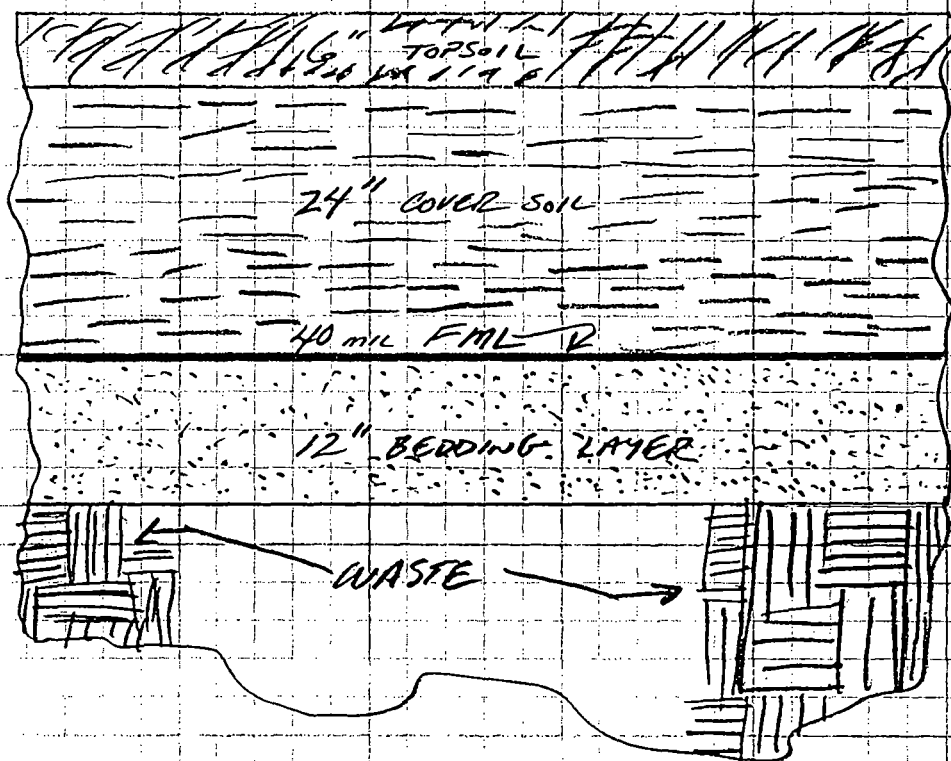 6"
TOPSOIL
24" COVER SOIL
40 MIL FML
12" BEDDING LAYER
WASTE